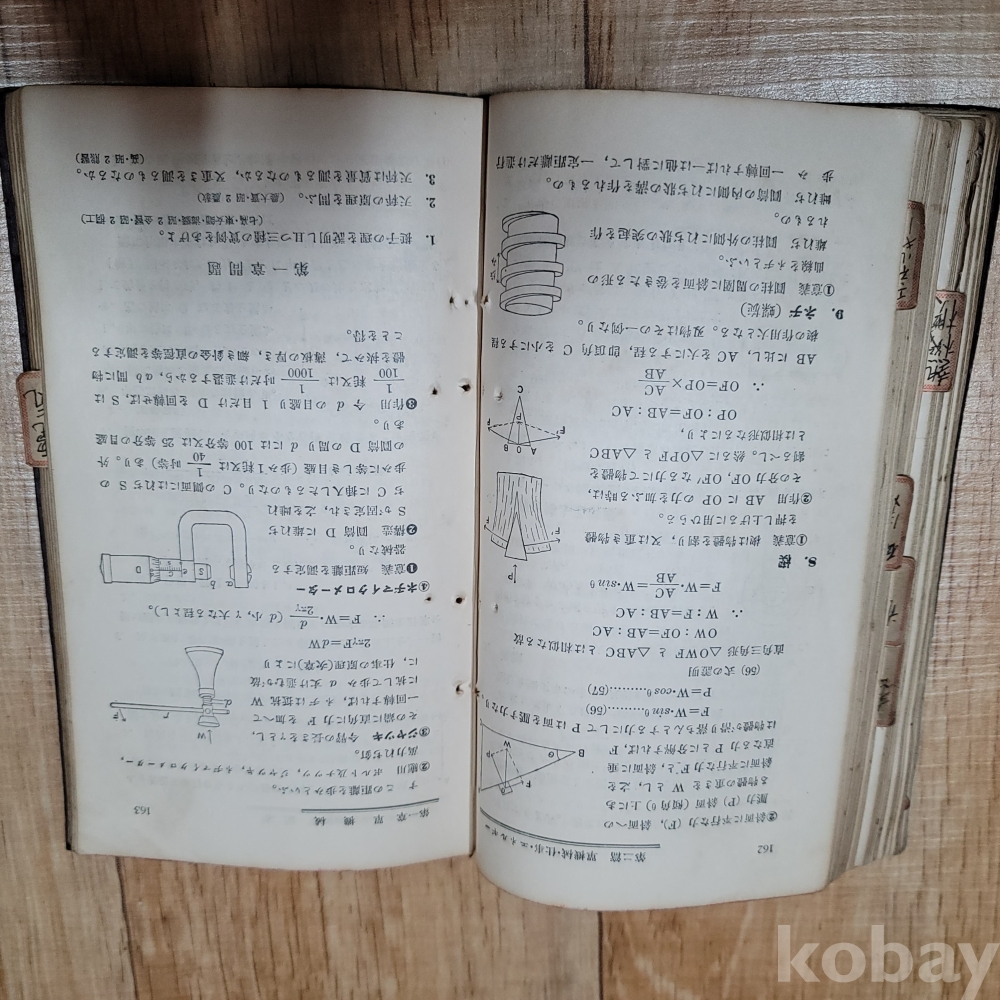 162
第二篇 單機械・仕事・エネルギー
②斜面に平行な力(F), 斜面への
壓力(P) 斜面(傾角θ)上にあ
る物體の重さを W とし, 之を
斜面に平行な力 F と, 斜面に垂
直なる力 P とに分解すれば, F
は物體が滑り落ちんとする力にして P は面を壓す力なり
F=W・sinθ.........(56)
P=W・cosθ.........(57)
(56) 式の證明
直角三角形 △OWF と △ABC とは相似なる故
OW : OF=AB : AC
∴ W : F=AB : AC
F=W・AC/AB=W・sinθ
8. 楔
①意義 楔は物體を割り, 又は重き物體
を押し上げるに用ひらる。
②作用 AB に OP の力を加ふる時は,
その分力 OF, OF′ なる力にて物體を
割るべし。然る △OPF と △ABC
とは相似形なるにより,
OP : OF=AB : AC
∴ OF=OP×AC/AB
AB に比し, AC を大にする程, 即頂角 C を小にする程
楔の作用大となる。刃物はその一例なり。
9. ネヂ (螺旋)
①意義 圓柱の周圍に斜面を卷きたる形の
曲線をネヂといふ。
雄ねぢ 圓柱の外側にねぢの狀の突起を作
れるもの。
雌ねぢ 圓筒の内側にねぢの狀の溝を作れるもの。
歩み 一回轉すれば一は他に對して, 一定距離だけ進行
163
第一章 單機械
す この距離を歩みといふ。
②應用 ボルト及ナツツ, ジヤツキ, ネヂマイクロメーター,
萬力ねぢ釘。
③ジヤツキ 今臂の長さをrとし,
その端に直角に力 F を加へて
一回轉すれば, ネヂは抵抗 W
に抗して歩み d 丈け進む故
に, 仕事の原理(次章)により
2πrF=dW
∴ F=W・d/2πr (d 小, r 大なる程よし)。
④ネヂマイクロメーター
❶意義 短距離を測定する
器械なり。
❷構造 圓筒 D に雄ねぢ
S が固定され, 之を雌ね
ぢ C に挿入したるものなり。C の側面にはねぢ S の
歩みに等しき目盛り (歩み1粍又は 1/40 吋等) あり。外
の圓筒 D の周り d には 100 等分又は 25 等分の目盛
あり。
❸作用 今 d の目盛り 1 目だけ D を回轉せば, S は
1/100 粍又は 1/1000 吋だけ進退するから, ab 間に物
體を挾みて, 薄板の厚さ, 細き針金の直徑等を測定する
ことを得。
第一章問題
1. 梃子の理を說明し且つ三種の實例をあげよ。
(七高・東女師・海機・昭 2 金醫・昭 2 横工)
2. 天秤の原理を問ふ。
3. 天秤は質量を測るものなるか, 又重さを測るものなるか。
熱
kobay